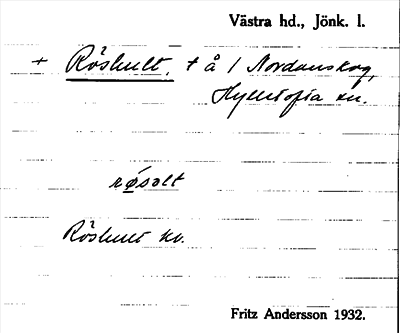 Västra hd., Jönk. l.
+ Röshult, + å / Nordanskog,
Hylletofta sn.
rø´səlt
Röshult kv.
Fritz Andersson 1932.